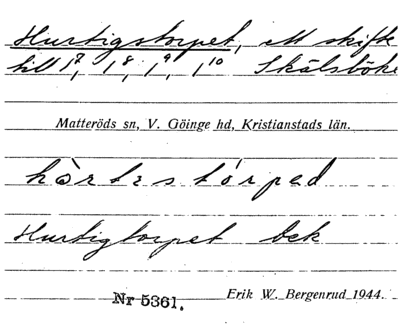 Hurtigstorpet, ett skifte
till 1⁷, 1⁸, 1⁹, 1¹⁰ Skälsböke
Matteröds sn, V. Göinge hd, Kristianstads län.
Hurtigtorpet bek
Nr 5361. Erik W. Bergenrud 1944.